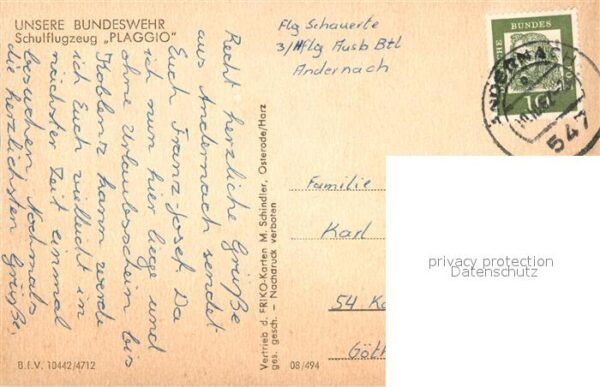 UNSERE BUNDESWEHR
Schulflugzeug „PLAGGIO"
Recht herzliche Grüße
aus Andernach sendet
Euch Franz-Josef. Da
ich nun hier liege und
ohne Urlaubsschein bis
Koblenz kann werde
ich Euch vielleicht in
nächster Zeit einmal
besuchen. Nochmals
die herzlichsten Grüße,
B.f.V. 10442/4712
Vertrieb d. FRIKO-Karten M. Schindler, Osterode/Harz
ges. gesch. - Nachdruck verboten
08/494
Flg Schauerte
3/ Flg Ausb Btl
Andernach
BUNDES
10
ANDERNACH
547
Familie
Karl
54 Ko
Gött
privacy protection
Datenschutz